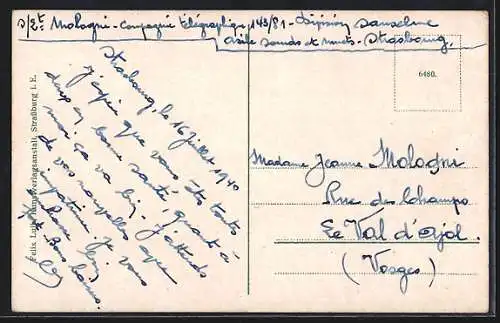 s/Lt Mologni - Compagnie télégraphique 143/81 - Division
asile sourds et muets - Strasbourg.
6480.
Strasbourg, le 16 juillet 1940
J'espère que vous êtes toutes
deux en bonne santé, quant à
moi ça va bien. J'attends
de vos nouvelles avec
impatience. Je vous
embrasse bien
Bons baisers.
Felix Luib, Kunstverlagsanstalt, Straßburg i. E.
Madame Jeanne Mologni
Rue des Champs
Le Val d'Ajol.
(Vosges)